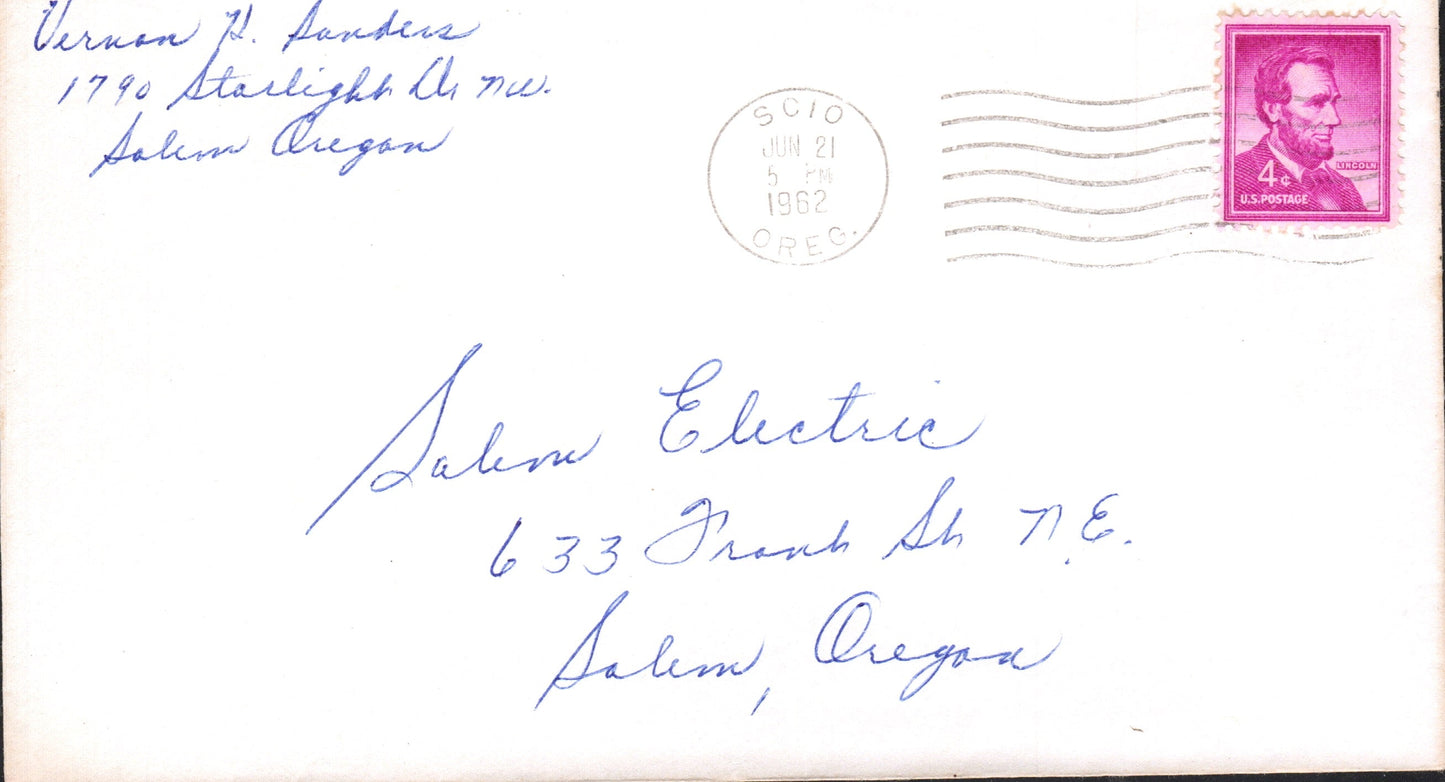 Vernon H. Sanders
1790 Starlight Dr NW.
Salem Oregon
SCIO
JUN 21
5 PM
1962
OREG.
LINCOLN
4¢
U.S. POSTAGE
Salem Electric
633 Frank St N.E.
Salem, Oregon